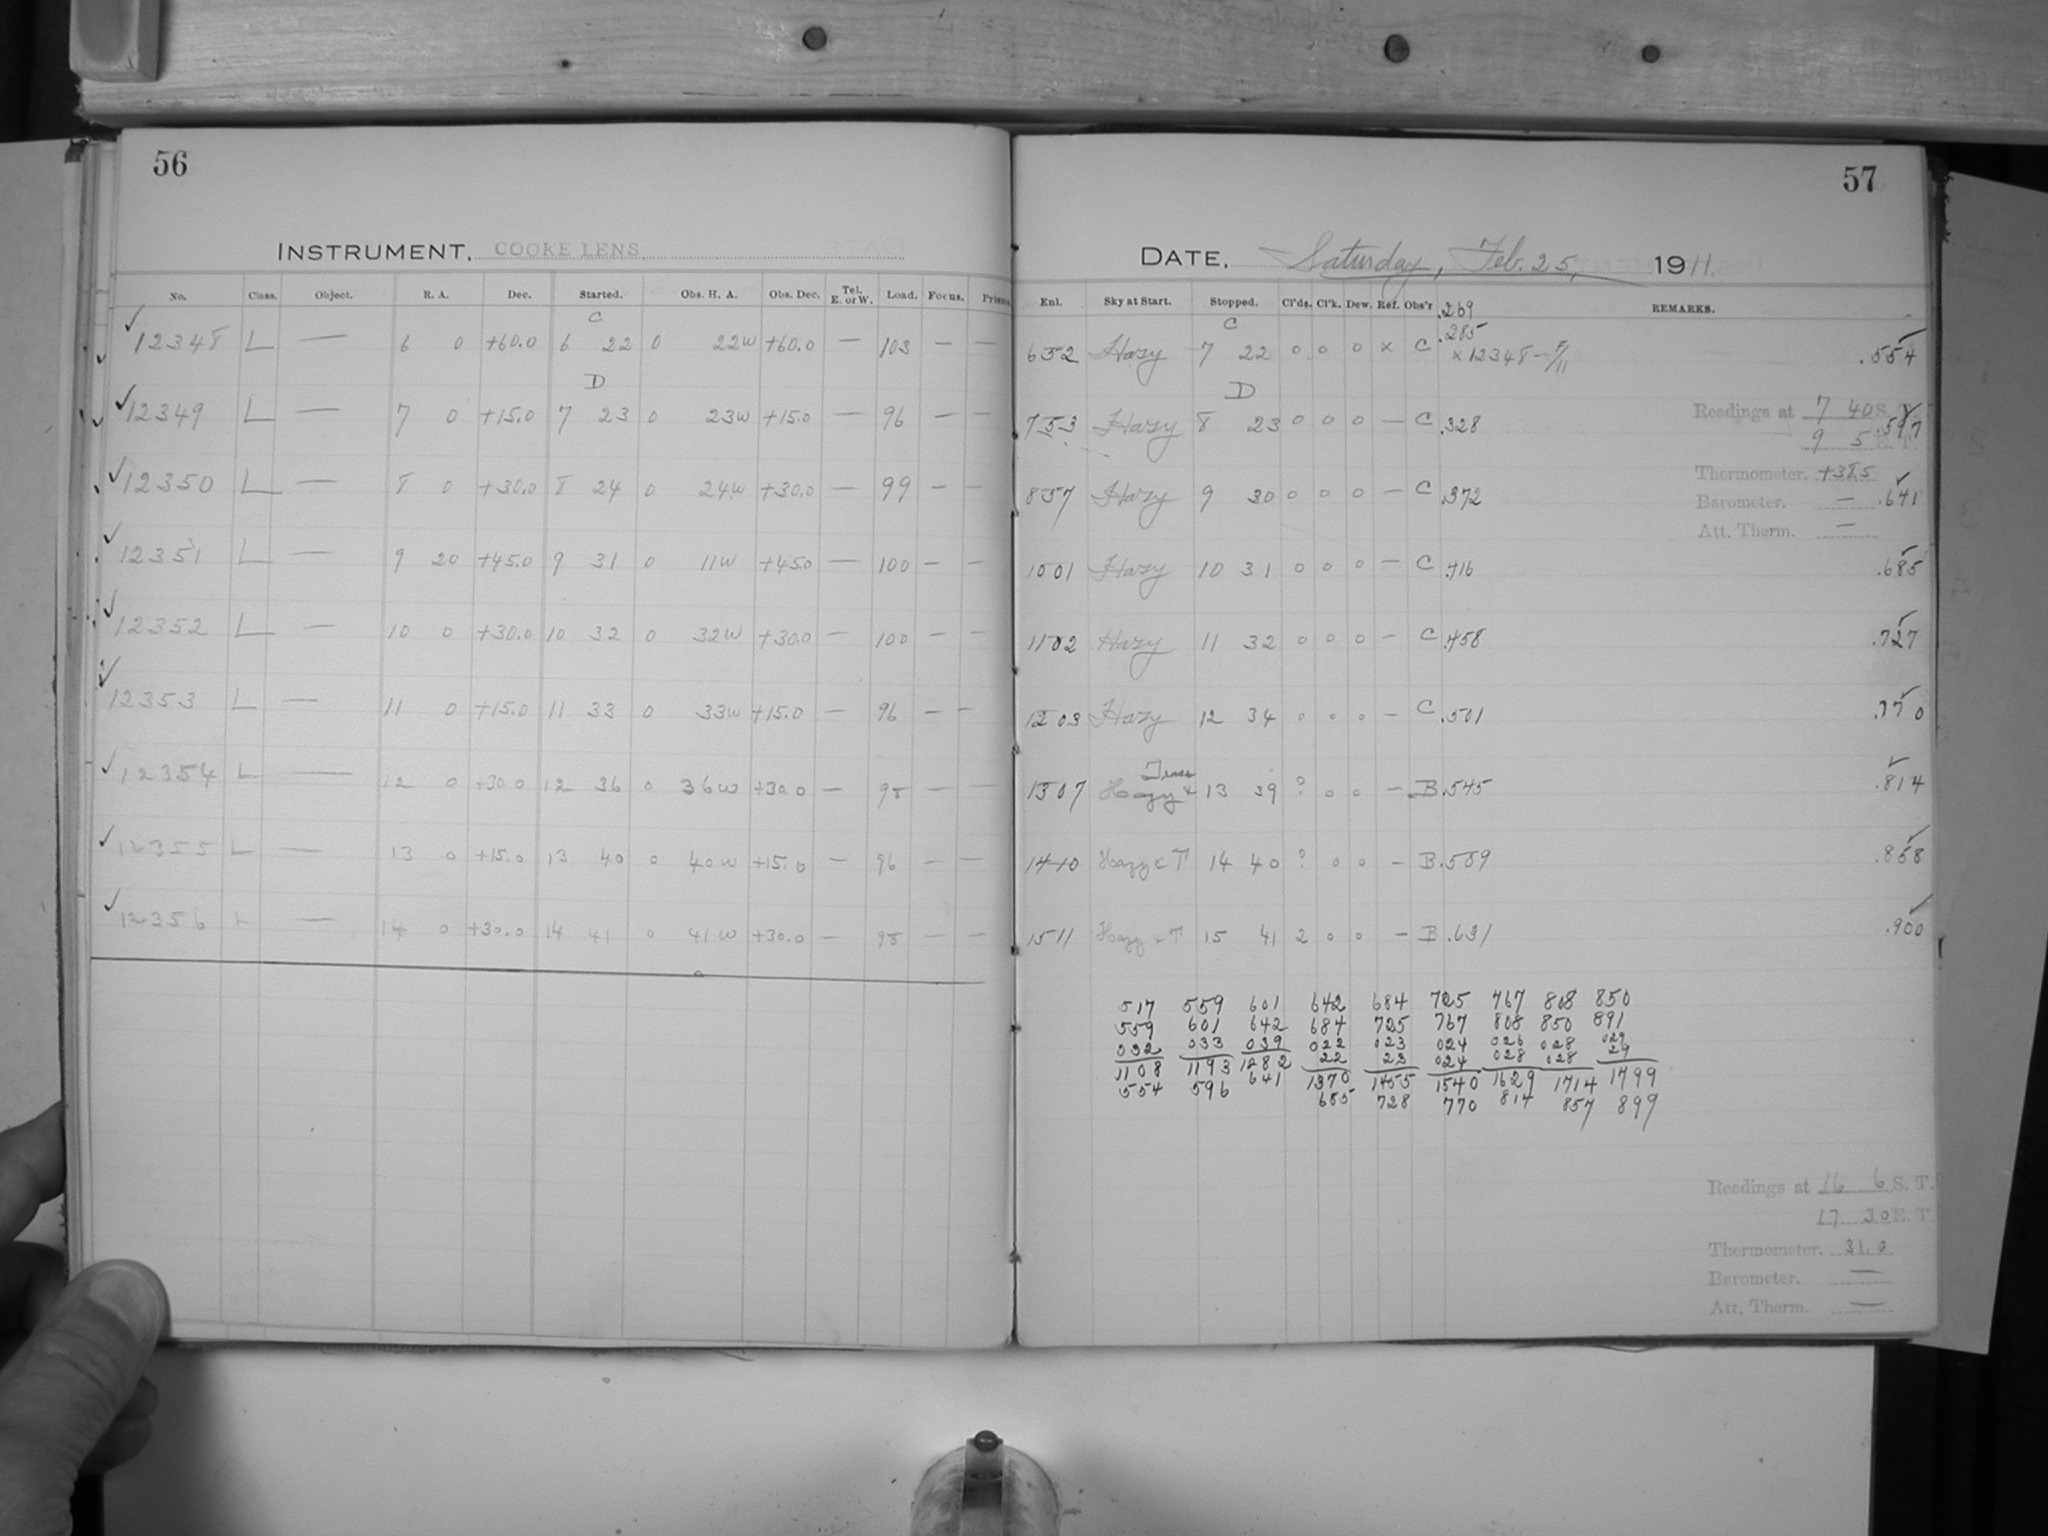 56
INSTRUMENT, COOKE LENS
No. Class. Object. R. A. Dec. Started. Obs. H. A. Obs. Dec. Tel. E. or W. Load. Focus. Prism
C
✓ 12348 L — 6 0 +60.0 6 22 0 22W +60.0 — 103 — —
D
✓ 12349 L — 7 0 +15.0 7 23 0 23W +15.0 — 96 — —
✓ 12350 L — 8 0 +30.0 8 24 0 24W +30.0 — 99 — —
✓ 12351 L — 9 20 +45.0 9 31 0 11W +45.0 — 100 — —
✓ 12352 L — 10 0 +30.0 10 32 0 32W +30.0 — 100 — —
✓ 12353 L — 11 0 +15.0 11 33 0 33W +15.0 — 96 — —
✓ 12354 L — 12 0 +30.0 12 36 0 36W +30.0 — 98 — —
✓ 12355 L — 13 0 +15.0 13 40 0 40W +15.0 — 96 — —
✓ 12356 L — 14 0 +30.0 14 41 0 41W +30.0 — 98 — —
57
DATE, Saturday, Feb. 25, 1911.
Enl. Sky at Start. Stopped. Cl'ds. Cl'k. Dew. Ref. Obs'r REMARKS.
.269
C .285
652 Hazy 7 22 0 0 0 × C ×12348-F/11 .554
D
753 Hazy 8 23 0 0 0 — C .328 .597
Readings at 7 40 S. T.
9 5 E. T.
Thermometer. +38.5
857 Hazy 9 30 0 0 0 — C .372 Barometer. — .641
Att. Therm. —
1001 Hazy 10 31 0 0 0 — C .416 .685
1102 Hazy 11 32 0 0 0 — C .458 .727
1203 Hazy 12 34 0 0 0 — C .501 .770
1307 Hazy & 13 39 ? 0 0 — B .545 .814
1410 Hazy c T 14 40 ? 0 0 — B .589 .858
1511 Hazy c T 15 41 2 0 0 — B .631 .900
517 559 601 642 684 725 767 808 850
559 601 642 684 725 767 808 850 891
032 033 039 022 023 024 026 028 029
22 23 024 028 028 29
1108 1193 1282 1370 1455 1540 1629 1714 1799
554 596 641 685 728 770 814 857 899
Readings at 16 6 S. T.
17 30 E. T.
Thermometer. 31.0
Barometer. —
Att. Therm. —